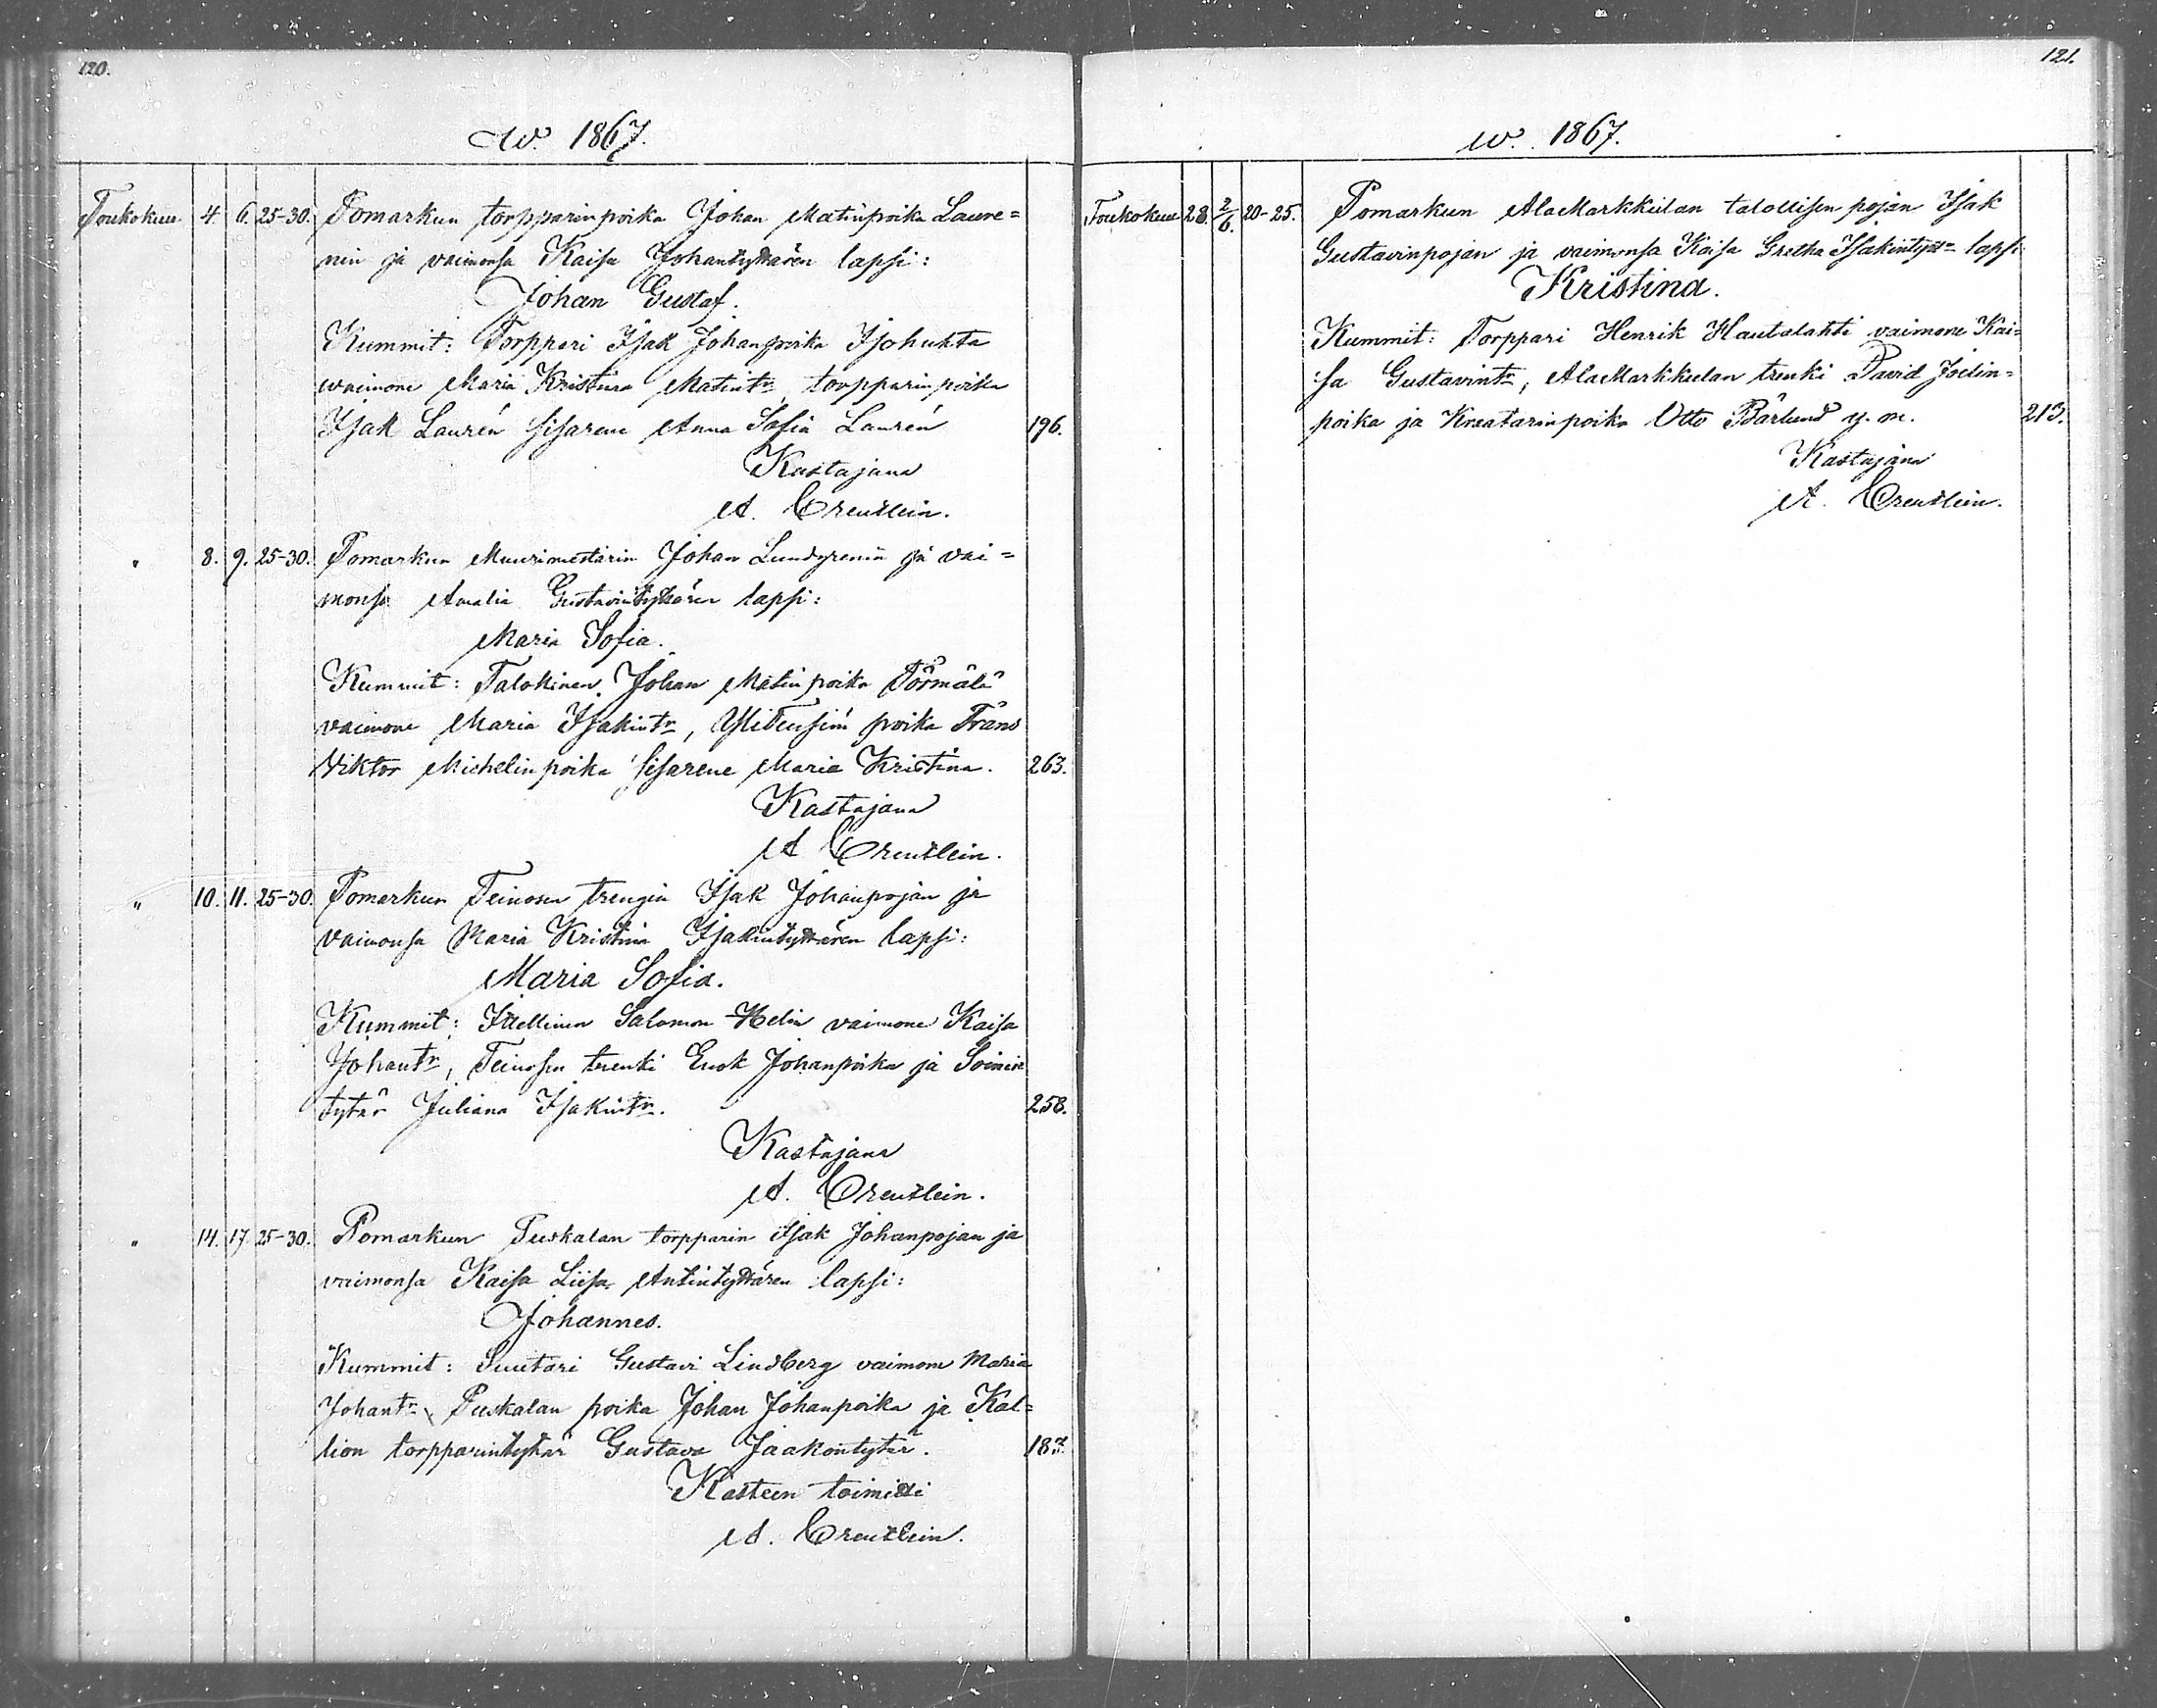 120.
w. 1867.
Toukokuu 4. 6. 25-30. Pomarkun torpparinpoika Johan Matinpoika Laure=
nin ja vaimonsa Kaisa Johantyttären lapsi:
Johan Gustaf.
Kummit: Torppari Isak Johanpoika Isohuhta
waimone Maria Kristina Matintr, torpparinpoika
Isak Laurén sisarene Anna Sofia Laurén 196.
Kastajana
A. Creutlein.
" 8. 9. 25-30. Pomarkun Muurimestarin Johan Lundgrenin ja vai=
monsa Amalia Gustavintyttären lapsi:
Maria Sofia.
Kummit: Talollinen Johan Matinpoika Törmälä
vaimone Maria Isakintr, poika Frans
Viktor Michelinpoika sisarene Maria Kristina. 263.
Kastajana
A Creutlein.
" 10. 11. 25-30. Pomarkun Teinosen trengin Isak Johanpojan ja
vaimonsa Maria Kristina Isakintyttären lapsi:
Maria Sofia.
Kummit: Itellinen Salomon Helin vaimone Kaisa
Johantr, Teinosen trenki Enok Johanpoika ja Soinin
tytär Juliana Isakintr. 258.
Kastajana
A. Creutlein.
" 14. 17. 25-30. Pomarkun Puskalan torpparin Isak Johanpojan ja
vaimonsa Kaisa Liisa Antintyttären lapsi:
Johannes.
Kummit: Suutari Gustavi Lindberg vaimone Maria
Johantr, Puskalan poika Johan Johanpoika ja Kal=
lion torpparintytär Gustava Jaakontytär. 187.
Kasteen toimitti
A. Creutlein.
121.
w. 1867.
Toukokuu 28. 2/6. 20-25. Pomarkun AlaMarkkulan talollisen pojan Isak
Gustavinpojan ja vaimonsa Kaisa Gretha Isakintyt= lapsi
Kristina.
Kummit: Torppari Henrik Hautalahti vaimone Kai=
sa Gustavintr, AlaMarkkulan trenki David Joelin=
poika ja Kraatarinpoika Otto Bärlund y. m. 213.
Kastajana
A. Creutlein.